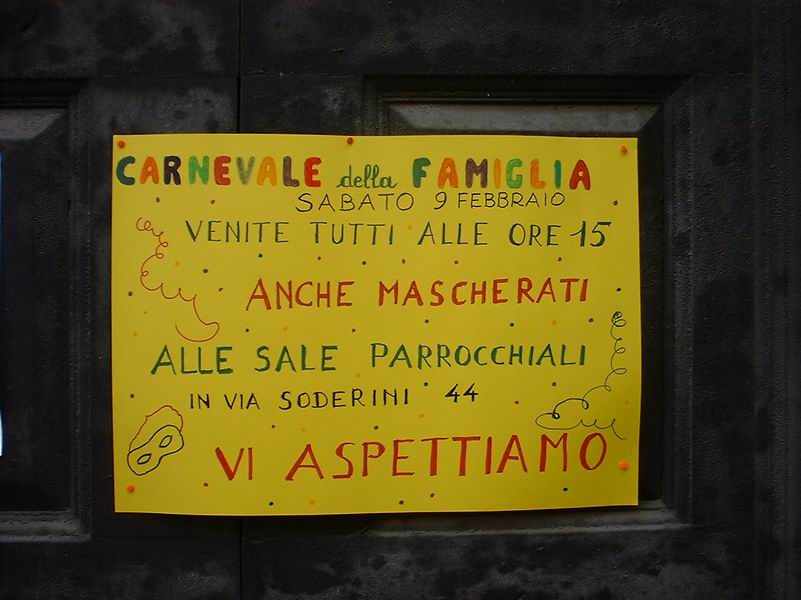 CARNEVALE della FAMIGLIA
SABATO 9 FEBBRAIO
VENITE TUTTI ALLE ORE 15
ANCHE MASCHERATI
ALLE SALE PARROCCHIALI
IN VIA SODERINI 44
VI ASPETTIAMO